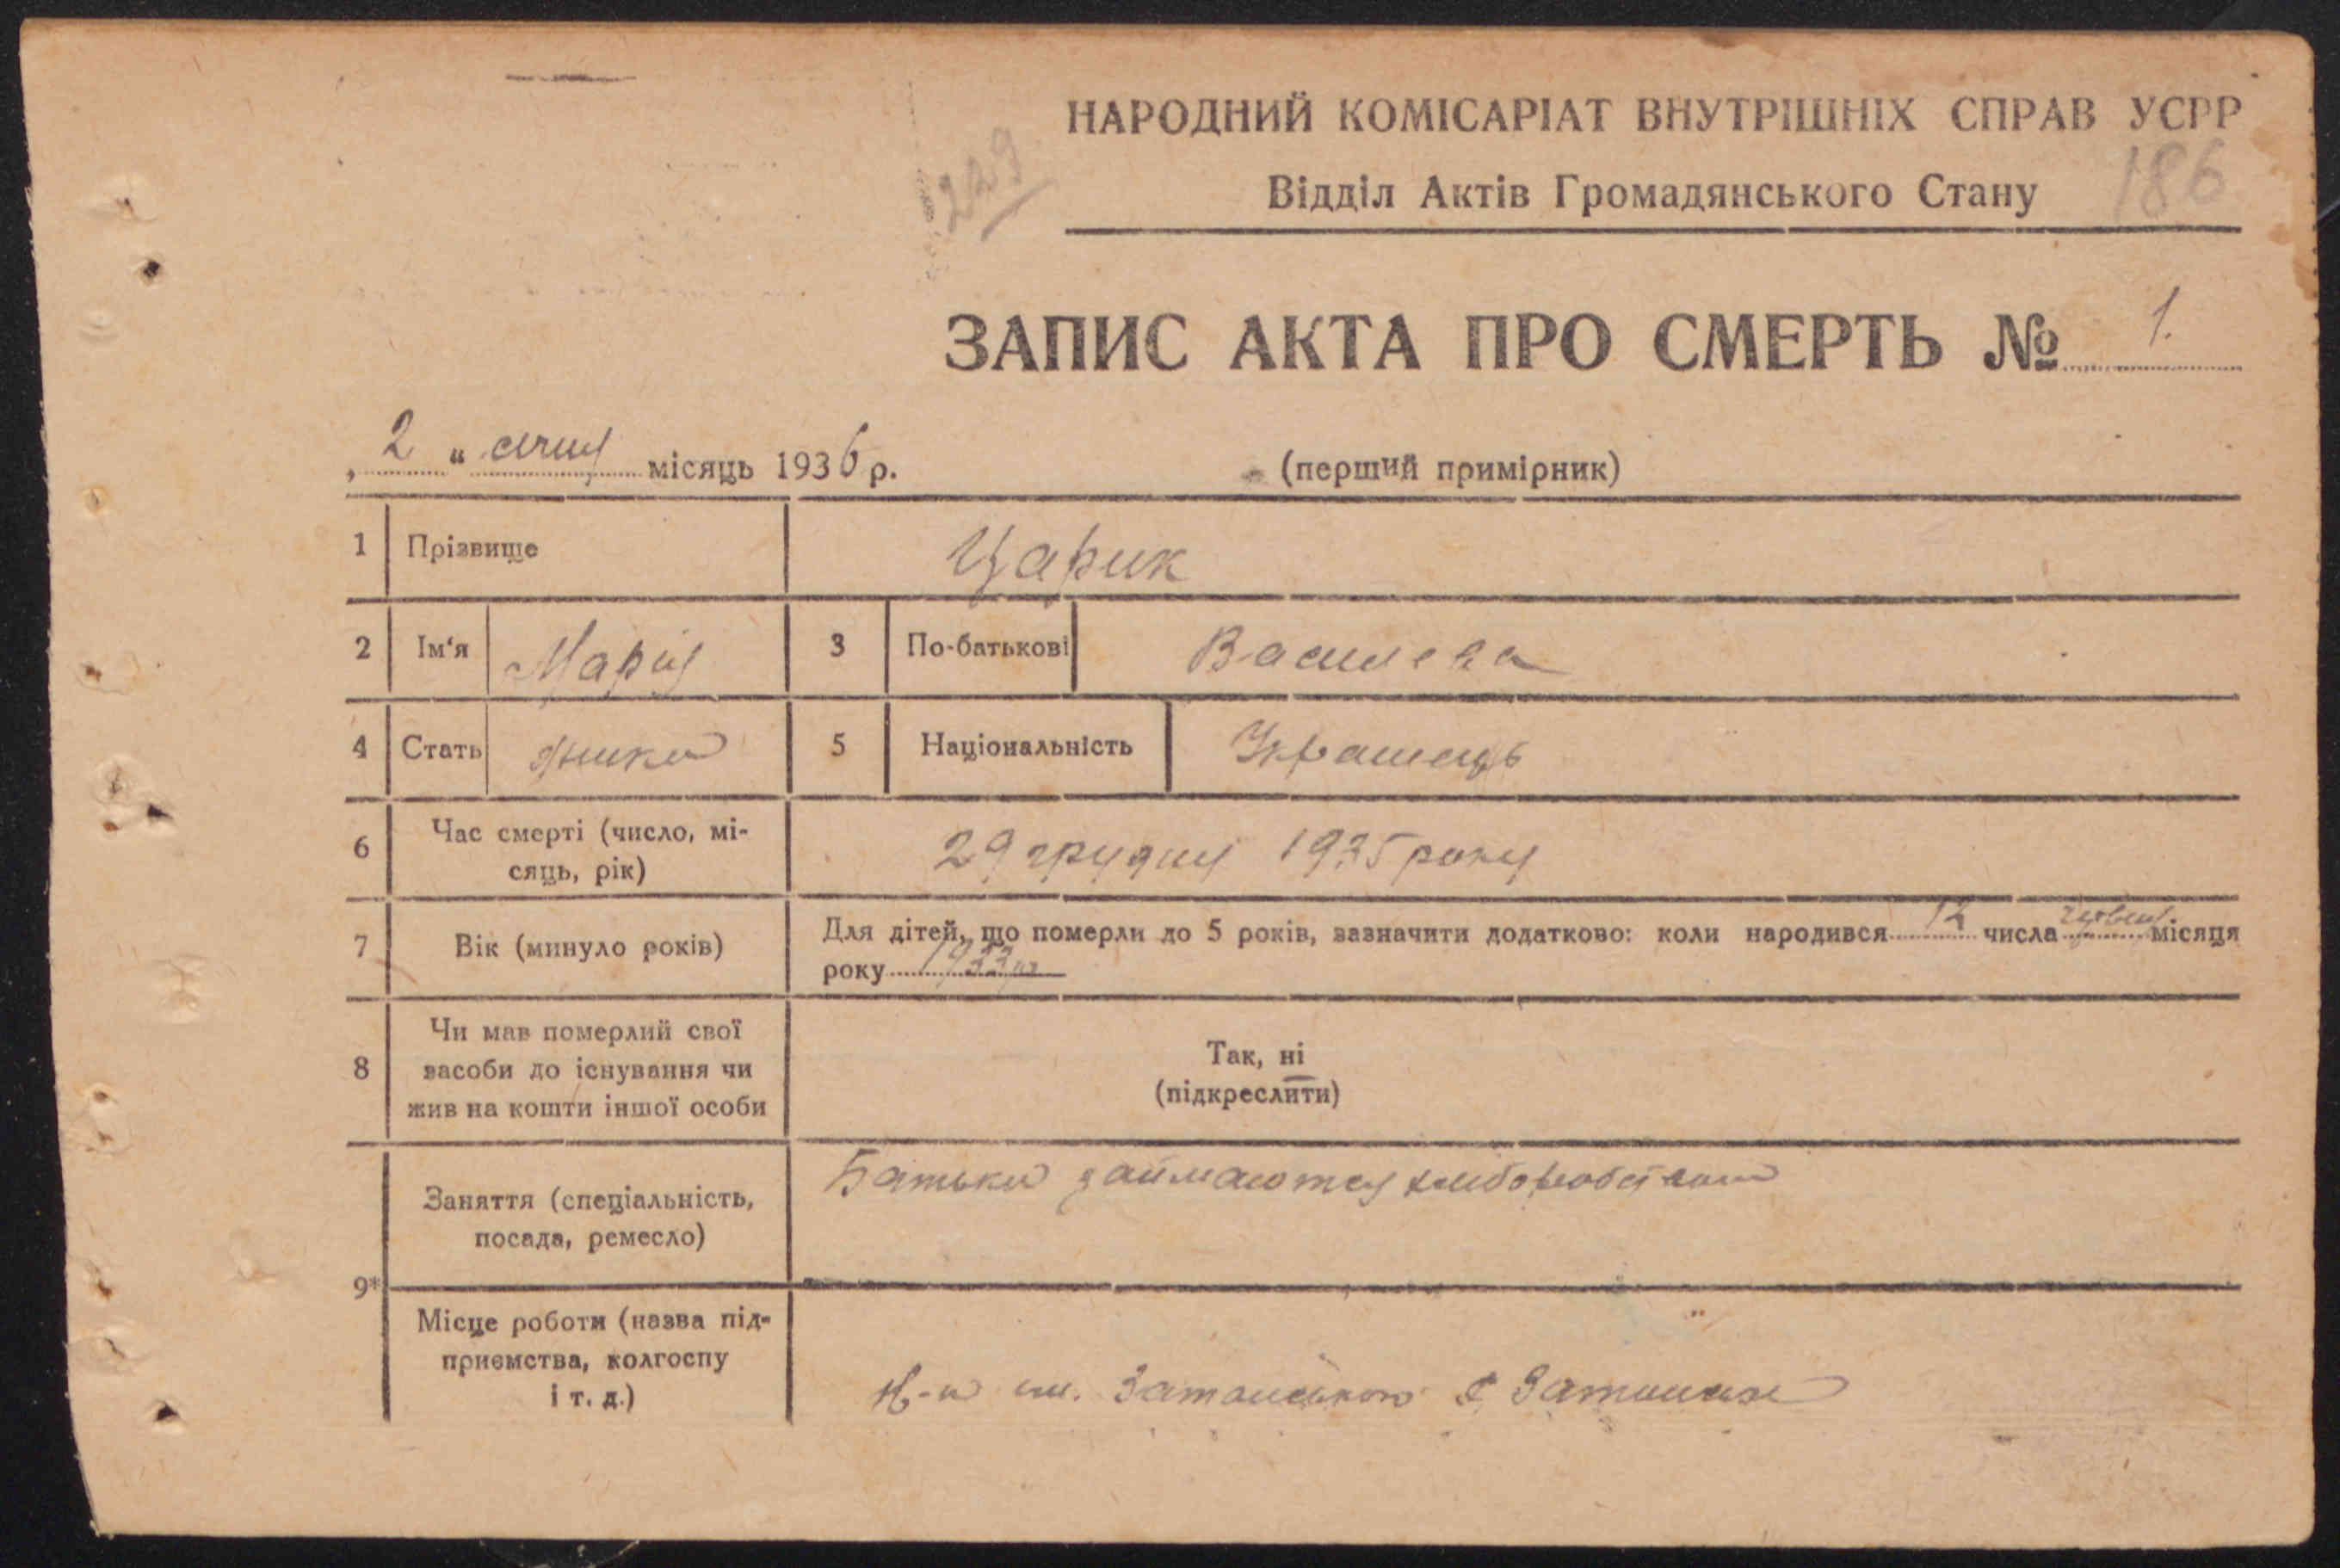 НАРОДНИЙ КОМІСАРІАТ ВНУТРІШНІХ СПРАВ УСРР
229
186
Відділ Актів Громадянського Стану
ЗАПИС АКТА ПРО СМЕРТЬ № 1.
„ 2 “ січня місяць 1936 р.
(перший примірник)
1 Прізвище Царик
2 Ім'я Марія 3 По-батькові Василева
4 Стать 5 Національність Українець
6 Час смерті (число, мі-
сяць, рік) 29 грудня 1935 року
7 Вік (минуло років) Для дітей, що померли до 5 років, зазначити додатково: коли народився 12 числа червня місяця
року 1933
8 Чи мав померлий свої
засоби до існування чи
жив на кошти іншої особи
Так, ні
(підкреслити)
9* Заняття (спеціальність,
посада, ремесло)
Батьки займаються хліборобством
Місце роботи (назва під-
приємства, колгоспу
і т. д.)
К-п ім. Затонського с